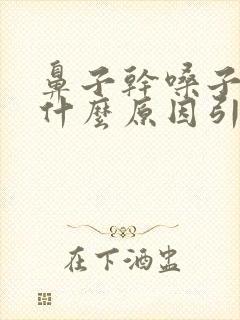 鼻子幹嗓子
什麼原因引
在下酒盅